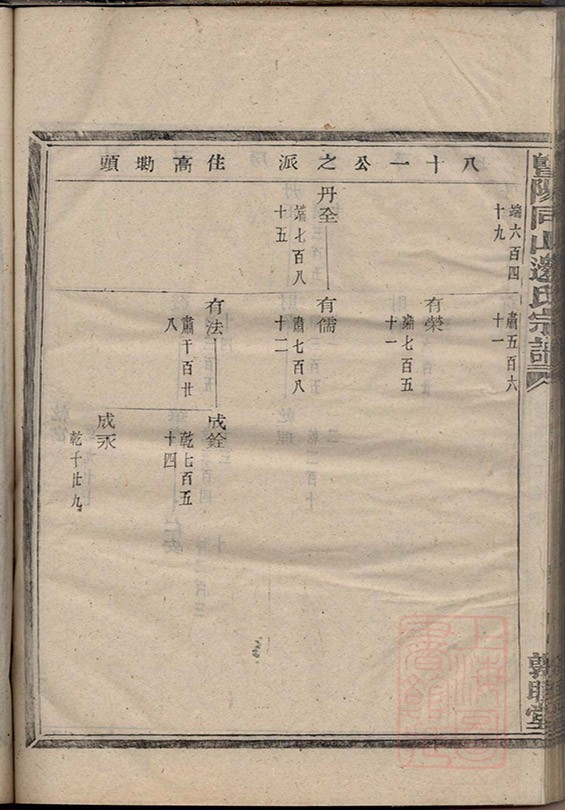 暨陽同山邊氏宗譜
敦睦堂
八十一公之派 住高塢頭
端六百四
十九
肅五百六
十一
丹全
端七百八
十五
有榮
肅七百五
十一
有儒
肅七百八
十二
有法
肅千百廿
八
成銓
乾七百五
十四
成永
乾千廿九